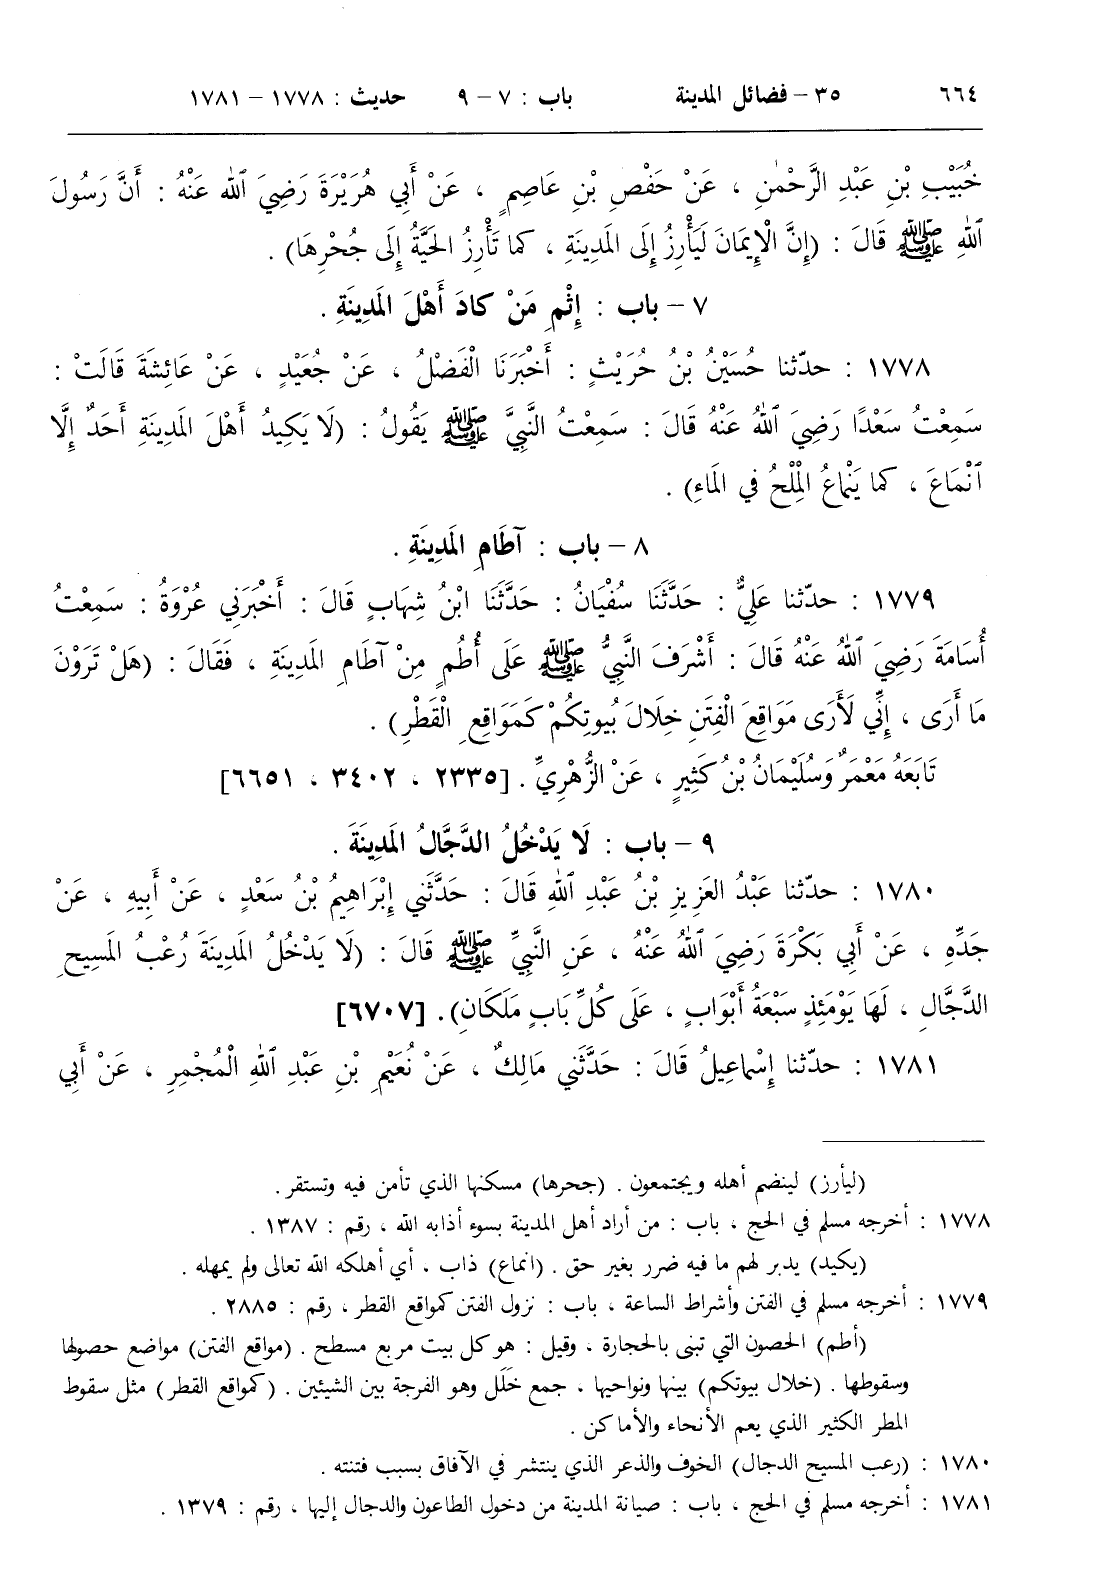 ٦٦٤ ٣٥ – فضائل المدينة باب : ٧ – ٩ حديث : ١٧٧٨ – ١٧٨١
خُبَيْبِ بْنِ عَبْدِ الرَّحْمٰنِ ، عَنْ حَفْصِ بْنِ عَاصِمٍ ، عَنْ أَبِي هُرَيْرَةَ رَضِيَ ٱللّٰه عَنْهُ : أَنَّ رَسُولَ
ٱللهِ ﷺ قَالَ : (إِنَّ الْإِيمَانَ لَيَأْرِزُ إِلَى المَدِينَةِ ، كما تَأْرِزُ الحَيَّةُ إِلَى جُحْرِهَا) .
٧ – باب : إِثْمِ مَنْ كادَ أَهْلَ المَدِينَةِ .
١٧٧٨ : حدّثنا حُسَيْنُ بْنُ حُرَيْثٍ : أَخْبَرَنَا الْفَضْلُ ، عَنْ جُعَيْدٍ ، عَنْ عَائِشَةَ قَالَتْ :
سَمِعْتُ سَعْدًا رَضِيَ ٱللّٰهُ عَنْهُ قَالَ : سَمِعْتُ النَّبِيَّ ﷺ يَقُولُ : (لَا يَكِيدُ أَهْلَ المَدِينَةِ أَحَدٌ إِلَّا
ٱنْمَاعَ ، كما يَنْمَاعُ الْمِلْحُ في المَاءِ) .
٨ – باب : آطَامِ المَدِينَةِ .
١٧٧٩ : حدّثنا عَلِيٌّ : حَدَّثَنَا سُفْيَانُ : حَدَّثَنَا ابْنُ شِهَابٍ قَالَ : أَخْبَرَنِي عُرْوَةُ : سَمِعْتُ
أُسَامَةَ رَضِيَ ٱللّٰهُ عَنْهُ قَالَ : أَشْرَفَ النَّبِيُّ ﷺ عَلَى أُطُمٍ مِنْ آطَامِ المَدِينَةِ ، فَقَالَ : (هَلْ تَرَوْنَ
مَا أَرَى ، إِنِّي لَأَرَى مَوَاقِعَ الْفِتَنِ خِلَالَ بُيوتِكُمْ كَمَوَاقِعِ الْقَطْرِ) .
تَابَعَهُ مَعْمَرٌ وَسُلَيْمَانُ بْنُ كَثِيرٍ ، عَنْ الزُّهْرِيِّ . [٢٣٣٥ ، ٣٤٠٢ ، ٦٦٥١]
٩ – باب : لَا يَدْخُلُ الدَّجَّالُ المَدِينَةَ .
١٧٨٠ : حدّثنا عَبْدُ العَزِيزِ بْنُ عَبْدِ ٱللهِ قَالَ : حَدَّثَنِي إِبْرَاهِيمُ بْنُ سَعْدٍ ، عَنْ أَبِيهِ ، عَنْ
جَدِّهِ ، عَنْ أَبِي بَكْرَةَ رَضِيَ ٱللّٰهُ عَنْهُ ، عَنِ النَّبِيِّ ﷺ قَالَ : (لَا يَدْخُلُ المَدِينَةَ رُعْبُ المَسِيحِ
الدَّجَّالِ ، لَهَا يَوْمَئِذٍ سَبْعَةُ أَبْوَابٍ ، عَلَى كُلِّ بَابٍ مَلَكَانِ) . [٦٧٠٧]
١٧٨١ : حدّثنا إِسْماعِيلُ قَالَ : حَدَّثَنِي مَالِكٌ ، عَنْ نُعَيْمِ بْنِ عَبْدِ ٱللهِ الْمُجْمِرِ ، عَنْ أَبِي
(ليأرز) لينضم أهله ويجتمعون . (جحرها) مسكنها الذي تأمن فيه وتستقر .
١٧٧٨ : أخرجه مسلم في الحج ، باب : من أراد أهل المدينة بسوء أذابه الله ، رقم : ١٣٨٧ .
(يكيد) يدبر لهم ما فيه ضرر بغير حق . (انماع) ذاب ، أي أهلكه الله تعالى ولم يمهله .
١٧٧٩ : أخرجه مسلم في الفتن وأشراط الساعة ، باب : نزول الفتن كمواقع القطر ، رقم : ٢٨٨٥ .
(أطم) الحصون التي تبنى بالحجارة ، وقيل : هو كل بيت مربع مسطح . (مواقع الفتن) مواضع حصولها
وسقوطها . (خلال بيوتكم) بينها ونواحيها ، جمع خَلَل وهو الفرجة بين الشيئين . (كمواقع القطر) مثل سقوط
المطر الكثير الذي يعم الأنحاء والأماكن .
١٧٨٠ : (رعب المسيح الدجال) الخوف والذعر الذي ينتشر في الآفاق بسبب فتنته .
١٧٨١ : أخرجه مسلم في الحج ، باب : صيانة المدينة من دخول الطاعون والدجال إليها ، رقم : ١٣٧٩ .